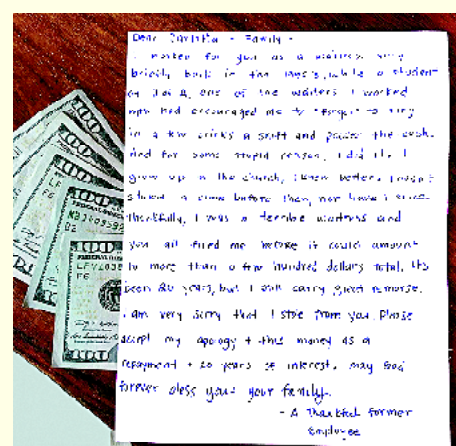 Dear Family -
I worked for you as a waitress very
briefly back in the while a student
at U of A. One of the waiters I worked
with had encouraged me to "forget" to ring
in a few drinks a shift and pocket the cash.
And for some stupid reason, I did it! I
grew up in the church, I knew better. I hadn't
stolen a before then, nor have I since.
Thankfully, I was a terrible waitress and
you all fired me before it could amount
to more than a few hundred dollars total. It's
been 20 years, but I still carry great remorse.
I am very sorry that I stole from you. Please
accept my apology + this money as a
repayment + 20 years of interest. May God
forever bless you + your family.
- A Thankful Former
Employee
100
100
100
100
LF
F6
B2
LF
F6